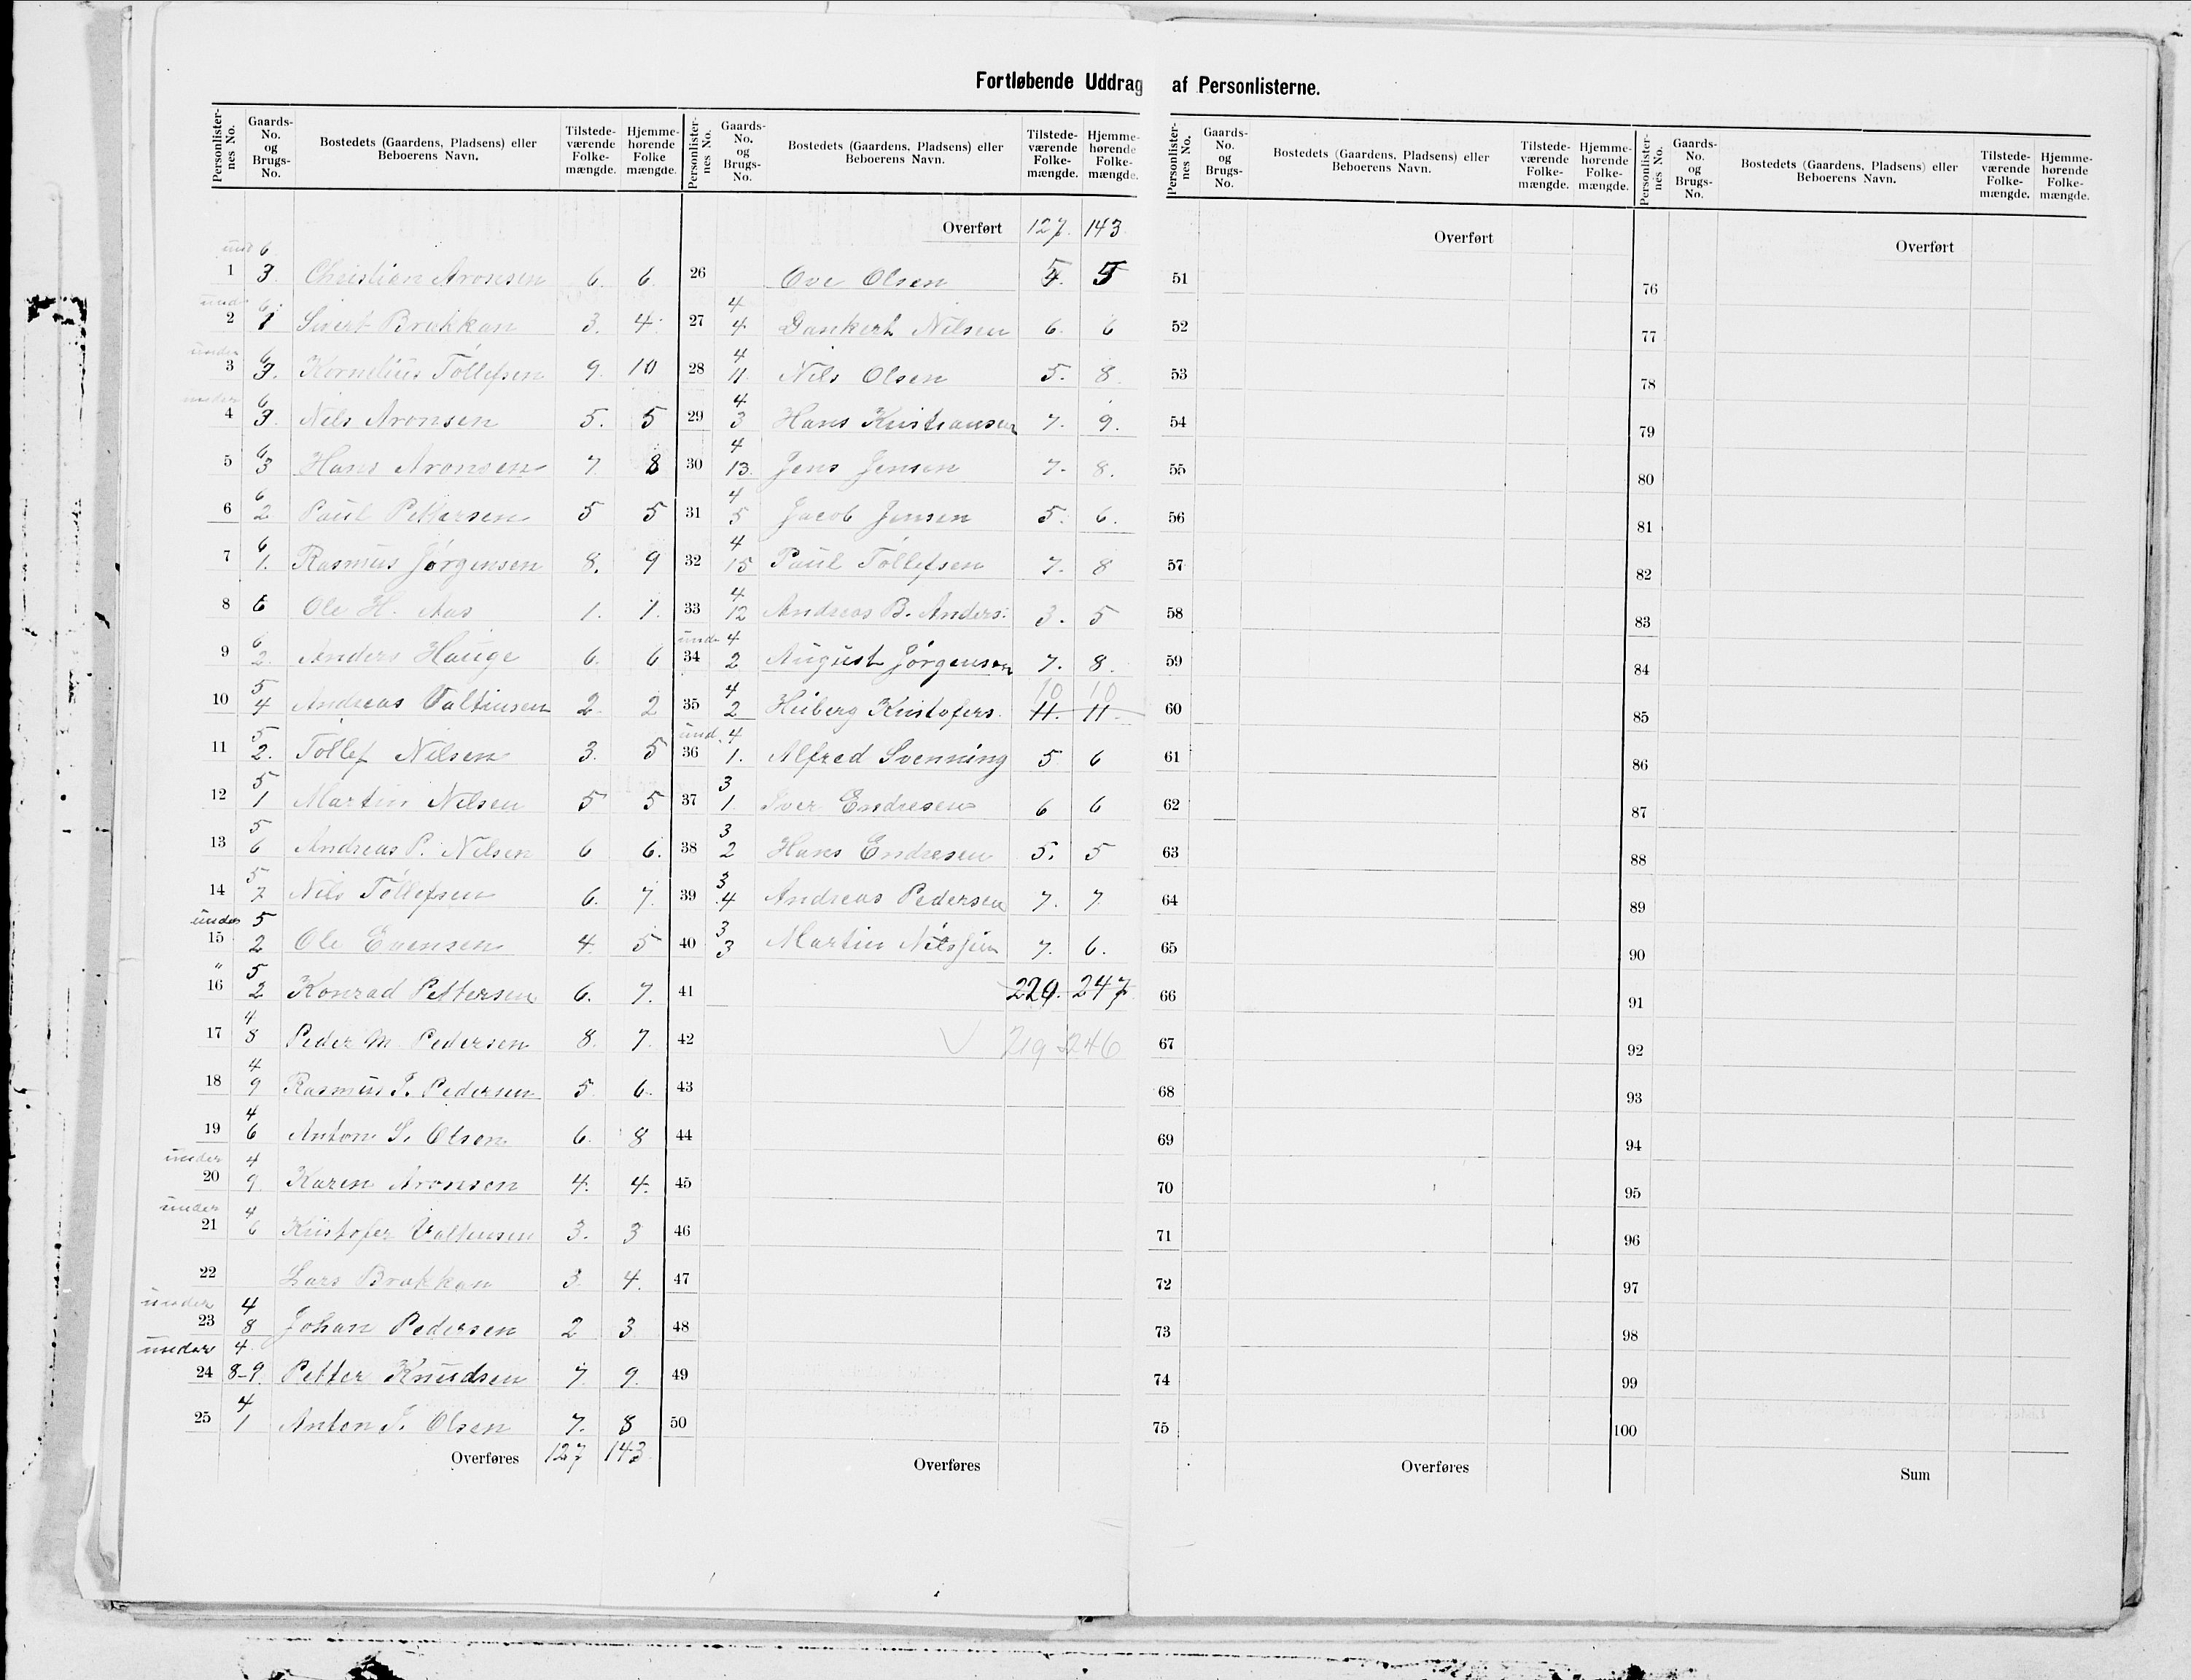 Fortløbende Uddrag af Personlisterne.
Personlisternes No. Gaards-No. og Brugs-No. Bostedets (Gaardens, Pladsens) eller Beboerens Navn. Tilstedeværende Folkemængde. Hjemmehørende Folke mængde.
und 6
1 3. Christian Aronsen 6. 6.
und. 6.
2 1 Sivert Brækkan 3. 4.
under 6
3 3. Kornelius Tollefsen 9. 10
under 6
4 3. Nils Aronsen 5. 5
6
5 3 Hans Aronsen 7 8
6
6 2 Paul Pettersen 5 5
6
7 1. Rasmus Jørgensen 8. 9
8 6 Ole H. Aas 1. 1.
6
9 2. Anders Hauge 6. 6
5
10 4 Andreas Valtinsen 2. 2
5
11 2. Tollef Nilsen 3. 5
5
12 1 Martin Nilsen 5 5
5
13 6 Andreas P. Nilsen 6 6.
5
14 7 Nils Tollefsen 6. 7.
under 5
15 2 Ole Evensen 4. 5
" 5
16 2 Konrad Pettersen 6. 7.
4
17 8 Peder M Pedersen 8. 7.
4
18 9 Rasmus P. Pedersen 5 6.
4
19 6 Anton S. Olsen 6. 8
under 4
20 9 Karen Aronsen 4. 4.
under 4
21 6 Kristofer Valtinsen 3. 3
22 Lars Brækkan 3. 4.
under 4
23 8 Johan Pedersen 2 3
under 4.
24 8-9. Petter Knudsen 7. 9.
4
25 1 Anton J. Olsen 7. 8
Overføres 127 143
Personlisternes No. Gaards-No. og Brugs-No. Bostedets (Gaardens, Pladsens) eller Beboerens Navn. Tilstedeværende Folkemængde. Hjemmehørende Folkemængde.
Overført 127. 143.
26 Ove Olsen 5. 5
4
27 4 Dankert Nilsen 6. 6
4
28 11. Nils Olsen 5. 8.
4
29 3 Hans Kristiansen 7. 9.
4
30 13. Jens Jensen 7. 8.
4
31 5 Jacob Jensen 5. 6.
4
32 15 Paul Tollefsen 7. 8
4
33 12 Andreas B. Anders. 3. 5
und. 4
34 2 August Jørgensen 7. 8.
4 10 10
35 2 Heiberg Kristofers. 11. 11.
und. 4
36 1. Alfred Svenning 5 6
3
37 1. Iver Endresen 6 6
3
38 2 Hans Endresen 5. 5
3
39 4 Andreas Pedersen 7. 7
3
40 3 Martin Nilssen 7. 6.
41 220. 247
42 219 246
43
44
45
46
47
48
49
50
Overføres
Personlisternes No. Gaards-No. og Brugs-No. Bostedets (Gaardens, Pladsens) eller Beboerens Navn. Tilstedeværende Folkemængde. Hjemmehørende Folkemængde.
Overført
51
52
53
54
55
56
57
58
59
60
61
62
63
64
65
66
67
68
69
70
71
72
73
74
75
Overføres
Personlisternes No. Gaards-No. og Brugs-No. Bostedets (Gaardens, Pladsens) eller Beboerens Navn. Tilstedeværende Folkemængde. Hjemmehørende Folkemængde.
Overført
76
77
78
79
80
81
82
83
84
85
86
87
88
89
90
91
92
93
94
95
96
97
98
99
100
Sum